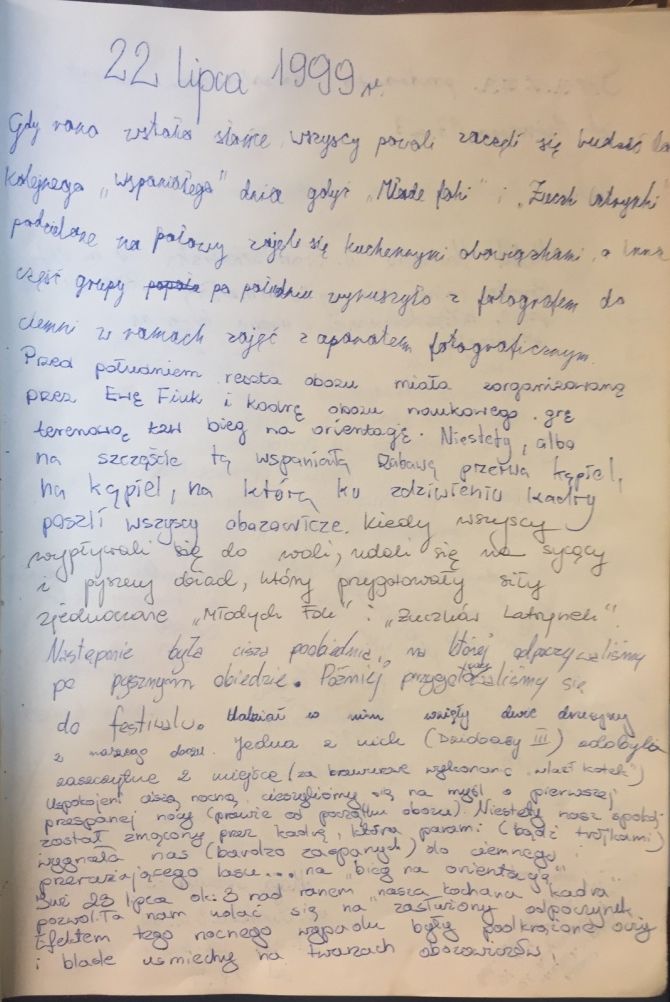 22 lipca 1999 r.
Gdy rano wstało słońce wszyscy powoli zaczęli się budzić do
kolejnego "wspaniałego" dnia gdyż "Młode foki" i "Żuczki latrynki"
podzielone na połowy zajęły się kuchennymi obowiązkami, a inna
część grupy po południu wyruszyła z fotografem do
ciemni w ramach zajęć z aparatem fotograficznym.
Przed południem reszta obozu miała zorganizowaną
przez Ewę Fiuk i kadrę obozu naukowego grę
terenową tzw bieg na orientację. Niestety, albo
na szczęście tą wspaniałą zabawą przerwa kąpiel,
na kąpiel, na którą ku zdziwieniu kadry
poszli wszyscy obozowicze. Kiedy wszyscy
wypływali się do woli, udali się na sycący
i pyszny obiad, który przygotowały siły
zjednoczone "Młodych Fok" i "Żuczków Latrynek".
Następnie była cisza poobiednia, na której odpoczywaliśmy
po pysznym obiedzie. Później przygotowywaliśmy się
do festiwalu. Udział w nim wzięły dwie drużyny
z naszego obozu. Jedna z nich (Dziobasy III) zdobyła
zaszczytne 2 miejsce (za brawurowe wykonanie "wlazł kotek")
Uspokojeni ciszą nocną, cieszyliśmy się na myśl o pierwszej
przespanej nocy (prawie od początku obozu). Niestety nasz spokój
został zmącony przez kadrę, która parami (bądź trójkami)
wygnała nas (bardzo zaspanych) do ciemnego i
przerażającego lasu... na "bieg na orientację"
Już 23 lipca ok. 3 nad ranem "nasza kochana kadra"
pozwoliła nam udać się na "zasłużony odpoczynek"
Efektem tego nocnego wypadu były podkrążone oczy
i blade uśmiechy na twarzach obozowiczów.